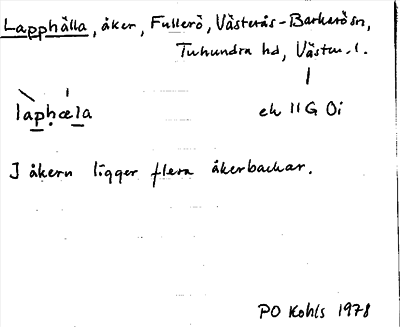 Lapphälla, åker, Fullerö, Västerås-Barkarö sn,
Tuhundra hd, Västm. l.
laphœla ek 11G 0i
I åkern ligger flera åkerbackar.
PO Kohls 1978